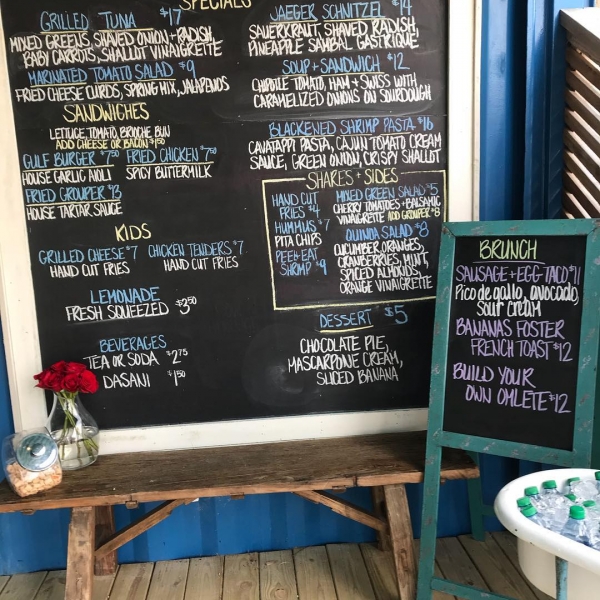 SPECIALS
GRILLED TUNA $17
MIXED GREENS, SHAVED ONION + RADISH,
BABY CARROTS, SHALLOT VINAIGRETTE
MARINATED TOMATO SALAD $9
FRIED CHEESE CURDS, SPRING MIX, JALAPENOS
SANDWICHES
LETTUCE, TOMATO, BRIOCHE BUN
ADD CHEESE OR BACON $1.50
GULF BURGER $7.50 FRIED CHICKEN $7.50
HOUSE GARLIC AIOLI SPICY BUTTERMILK
FRIED GROUPER $13
HOUSE TARTAR SAUCE
KIDS
GRILLED CHEESE $7 CHICKEN TENDERS $7
HAND CUT FRIES HAND CUT FRIES
LEMONADE
FRESH SQUEEZED $3.50
BEVERAGES
TEA OR SODA $2.75
DASANI $1.50
JAEGER SCHNITZEL $14
SAUERKRAUT, SHAVED RADISH,
PINEAPPLE SAMBAL GASTRIQUE
SOUP + SANDWICH $12
CHIPOTLE TOMATO, HAM + SWISS WITH
CARAMELIZED ONIONS ON SOURDOUGH
BLACKENED SHRIMP PASTA $16
CAVATAPPI PASTA, CAJUN TOMATO CREAM
SAUCE, GREEN ONION, CRISPY SHALLOT
SHARES + SIDES
HAND CUT
FRIES $4
HUMMUS $7
PITA CHIPS
PEEL + EAT
SHRIMP $9
MIXED GREEN SALAD $5
CHERRY TOMATOES + BALSAMIC
VINAIGRETTE ADD GROUPER $8
QUINOA SALAD $8
CUCUMBER, ORANGES,
CRANBERRIES, MINT,
SPICED ALMONDS,
ORANGE VINAIGRETTE
DESSERT $5
CHOCOLATE PIE,
MASCARPONE CREAM,
SLICED BANANA
BRUNCH
SAUSAGE + EGG TACO $11
Pico de gallo, avocado,
sour cream
BANANAS FOSTER
FRENCH TOAST $12
BUILD YOUR
OWN OMLETE $12